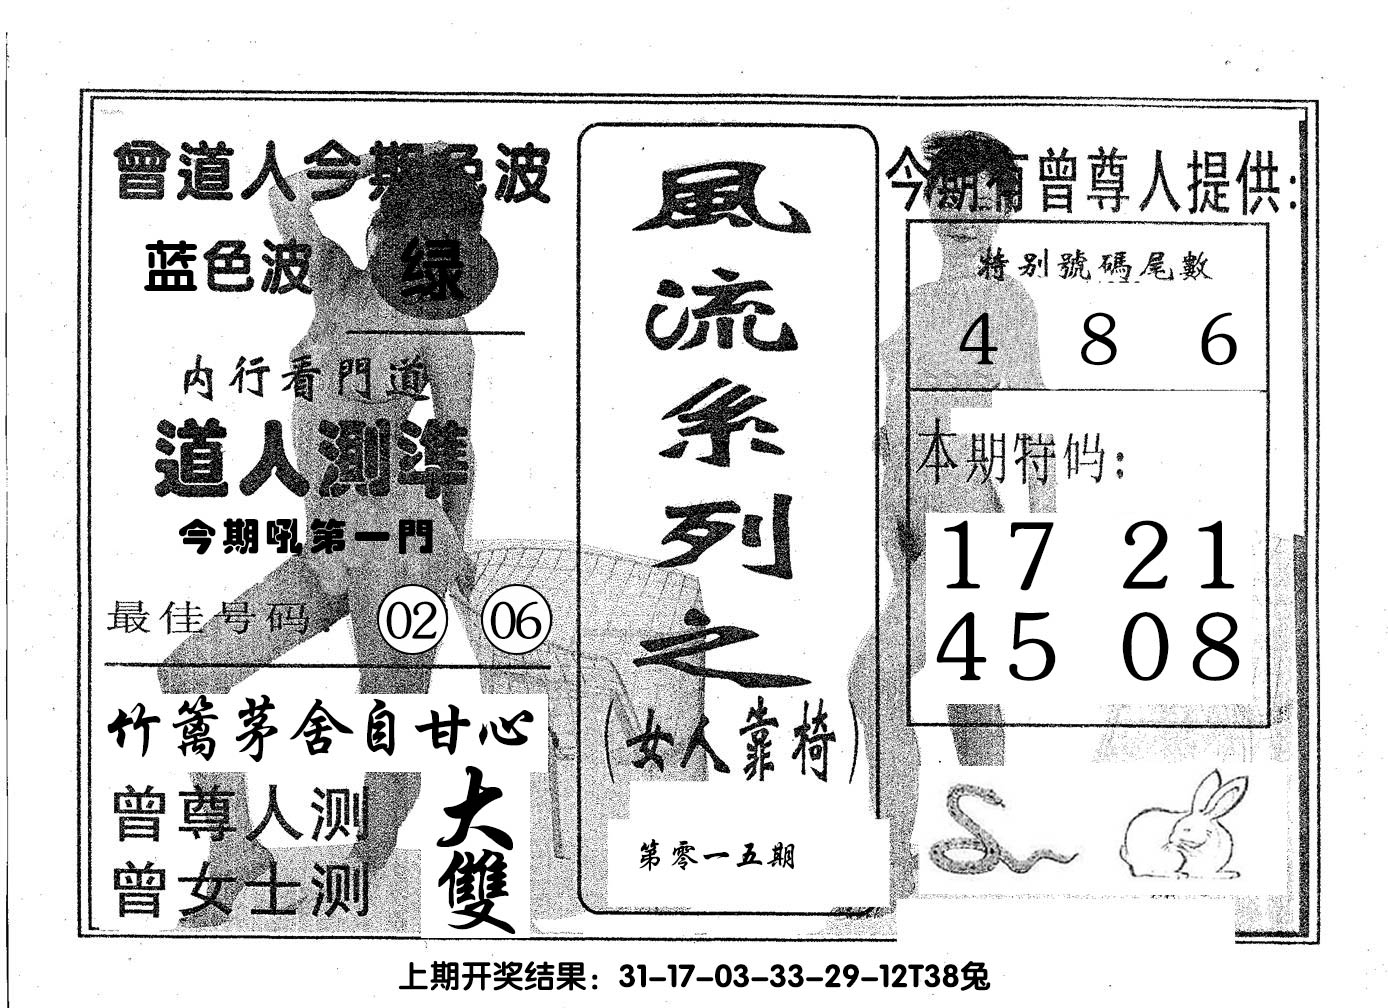 曾道人今期色波
蓝色波 绿
内行看門道
道人測準
今期吼第一門
最佳号码: 02 06
竹籬茅舍自甘心
曾尊人测 大
曾女士测 雙
風流系列之
(女人靠椅)
第零一五期
今期有曾尊人提供:
特别號碼尾數
4 8 6
本期特码:
17 21
45 08
上期开奖结果：31-17-03-33-29-12T38兔